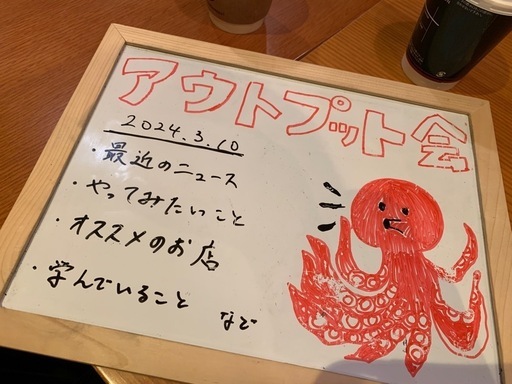 アウトプット会
2024.3.10
・最近のニュース
・やってみたいこと
・オススメのお店
・学んでいること など